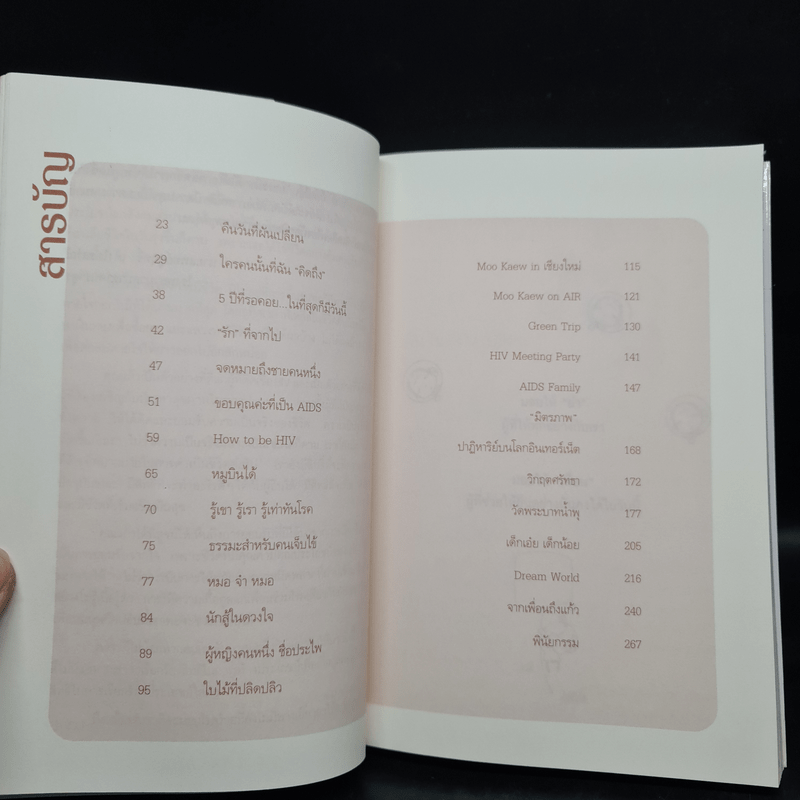 สารบัญ
23 คืนวันที่ผันเปลี่ยน
29 ใครคนนั้นที่ฉัน "คิดถึง"
38 5 ปีที่รอคอย...ในที่สุดก็มีวันนี้
42 "รัก" ที่จากไป
47 จดหมายถึงชายคนหนึ่ง
51 ขอบคุณค่ะที่เป็น AIDS
59 How to be HIV
65 หมูบินได้
70 รู้เขา รู้เรา รู้เท่าทันโรค
75 ธรรมะสำหรับคนเจ็บไข้
77 หมอ จ๋า หมอ
84 นักสู้ในดวงใจ
89 ผู้หญิงคนหนึ่ง ชื่อประไพ
95 ใบไม้ที่ปลิดปลิว
Moo Kaew in เชียงใหม่ 115
Moo Kaew on AIR 121
Green Trip 130
HIV Meeting Party 141
AIDS Family 147
"มิตรภาพ"
ปาฏิหาริย์บนโลกอินเทอร์เน็ต 168
วิกฤตศรัทธา 172
วัดพระบาทน้ำพุ 177
เด็กเอ๋ย เด็กน้อย 205
Dream World 216
จากเพื่อนถึงแก้ว 240
พินัยกรรม 267